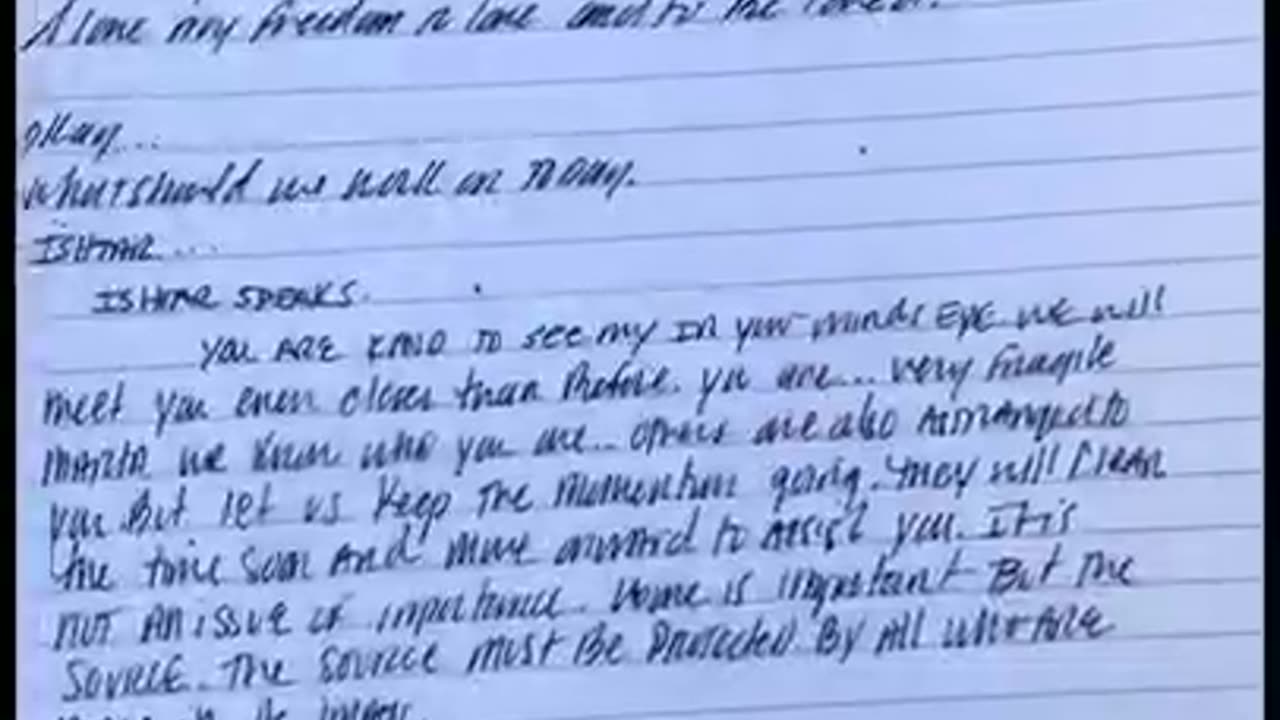 Alone my freedom to love and to the
okay...
what should we work on today.
ISHTAR...
ISHTAR SPEAKS.
YOU ARE KIND TO see my IN your minds EYE WE will
meet you even closer than Before. you are... very fragile
we know who you are... others are also ARRANGED to
you. But let us keep the momentum going. They will CLEAR
the time soon And move onward to assist you. It is
NOT AN ISSUE of importance. is important But the
SOURCE. The SOURCE must Be Protected By All who ARE